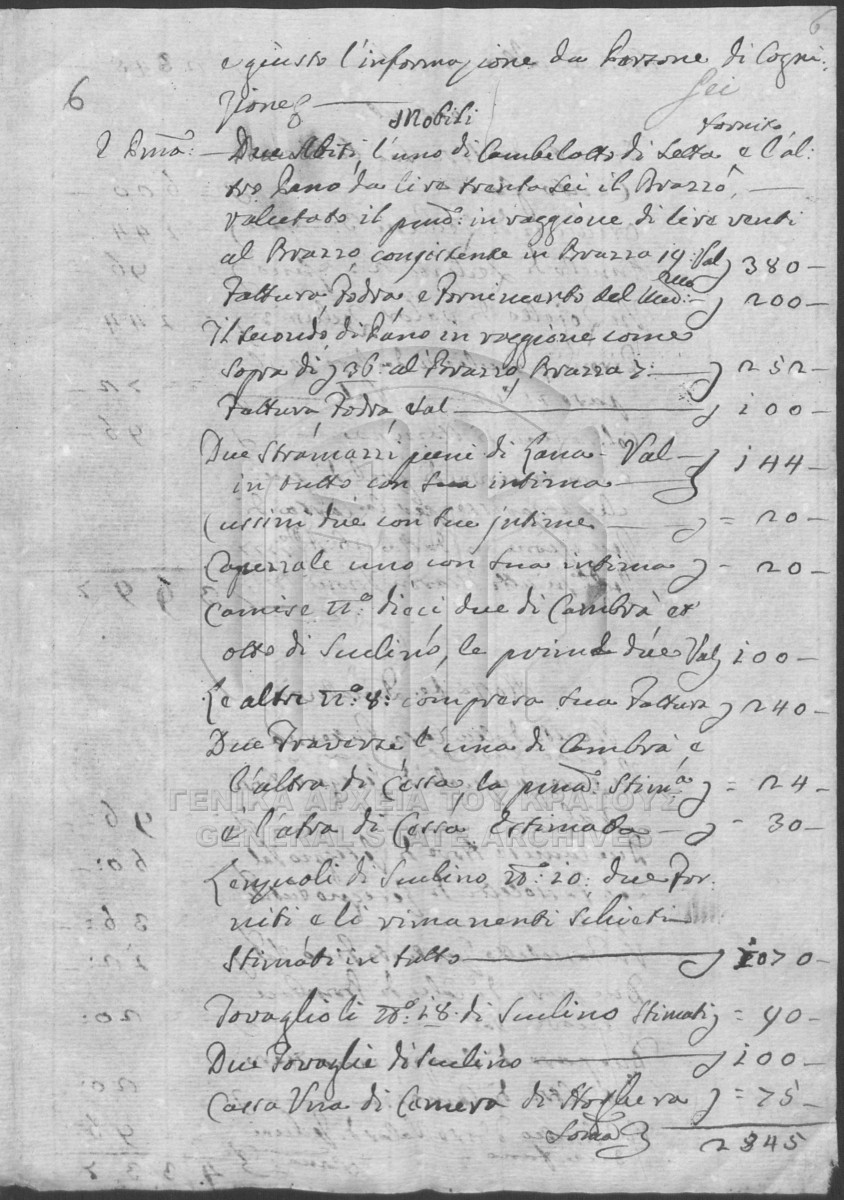 6
6
e giusto l'informazione da Persone di Cogni:
zione
Sei
Mobili
fornito
Due Abiti, l'uno di Cambelotto di Setta e l'al:
tro Pano da lire trenta sei il Brazzo,
valutato il pmo: in raggione di lire venti
al Brazzo consistente in Brazza 19: Val 380
Fattura, Fodra e Fornimento del 200
Il secondo di Pano in raggione come
sopra di 36: al Brazzo, Brazza 7: 252
Fattura Fodra Val 100
Due Stramazzi pieni di Lana Val 144
in tutto con sua intima
Cussini due con sue intime = 20
Capezzale uno con sua intima 20
Camise no. dieci due di Cambrà et
otto di Sculino, le prime due Val 100
Le altre no. 8: compresa sua Fattura 240
Due Traverse l'una di Cambrà e
l'altra di Cessa, la pma: Stima = 24
e l'altra di Cessa Estimata 30
ΓΕΝΙΚΑ ΑΡΧΕΙΑ ΤΟΥ ΚΡΑΤΟΥΣ
GENERAL STATE ARCHIVES
Lenzuoli di Sculino no. 20: due For:
niti e li rimanenti Schieti
Stimati in tutto 1070
Tovaglioli no. 18 di Sculino Stimati = 90
Due Tovaglie di Sculino 100
Cassa Una di Camera di Noghera = 75
Soma 2845